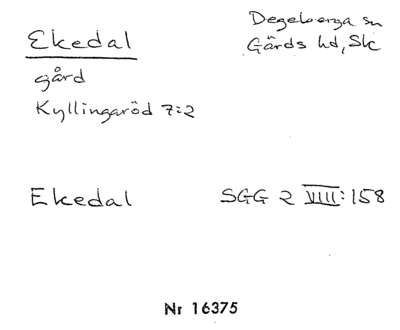 Ekedal
Degeberga sn
Gärds hd, Sk
gård
Kyllingaröd 7:2
Ekedal SGG 2 VIIII:158
Nr 16375